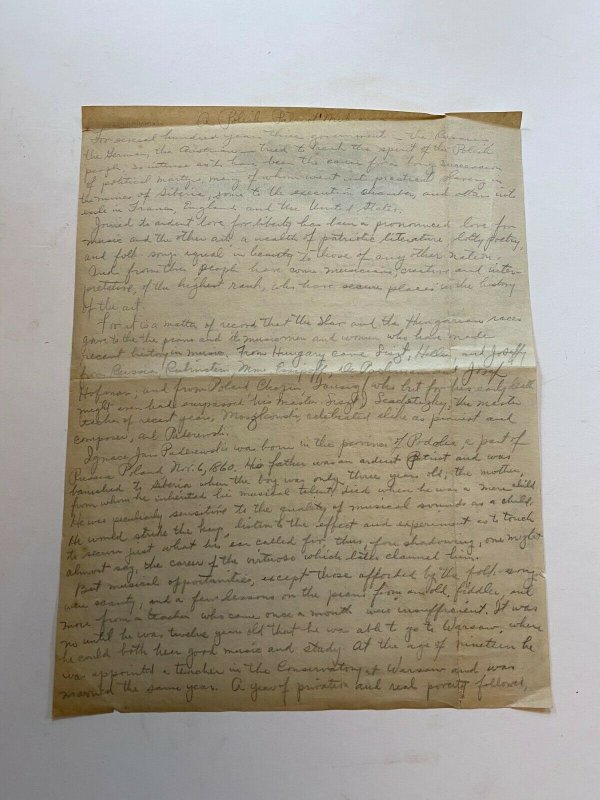 A Polish
For several hundred years three governments - the Russian,
the German, the Austrian - tried to crush the spirit of the Polish
people, so intense as to have been the cause for a long succession
of political martyrs, many of whom went into practical slavery in
the mines of Siberia, some to the execution chamber, and others into
exile in France, England and the United States.
Joined to ardent love for liberty has been a pronounced love for
music and the other arts, a wealth of patriotic literature, lofty poetry,
and folk songs equal in beauty to those of any other nation.
And from this people have come musicians, creative and inter-
pretative, of the highest rank, who have secure places in the history
of the art.
For it is a matter of record that the Slav and the Hungarian races
gave to the the piano and its music men and women who have made
recent history in music. From Hungary came Liszt, Heller, and Joseffy
Russia, Rubinstein, Mme. Essipoff, De Pachmann and Josef
Hofman; and from Poland Chopin, Tausig, who but for his early death
might even have surpassed his master Liszt, Leschetizky, the master
teacher of recent years, Moszkowski, celebrated alike as pianist and
composer, and Paderewski.
Ignace Jan Paderewski was born in the province of Podolia, a part of
Russia Poland Nov. 6, 1860. His father was an ardent Patriot and was
banished to Siberia when the boy was only three years old; the mother,
from whom he inherited his musical talent, died when he was a mere child
He was peculiarly sensitive to the quality of musical sounds as a child.
He would strike the keys, listen to the effect and experiment as to touch
to secure just what his ear called for, thus, foreshadowing, one might
almost say, the career of the virtuoso which later claimed him.
But musical opportunities, except those afforded by the folk-songs
were scanty, and a few lessons on the piano from an old fiddler, and
more from a teacher who came once a month were insufficient. It was
no until he was twelve years old that he was able to go to Warsaw, where
he could both hear good music and study. At the age of nineteen he
was appointed a teacher in the Conservatory at Warsaw and was
married the same year. A year of privation and real poverty followed,